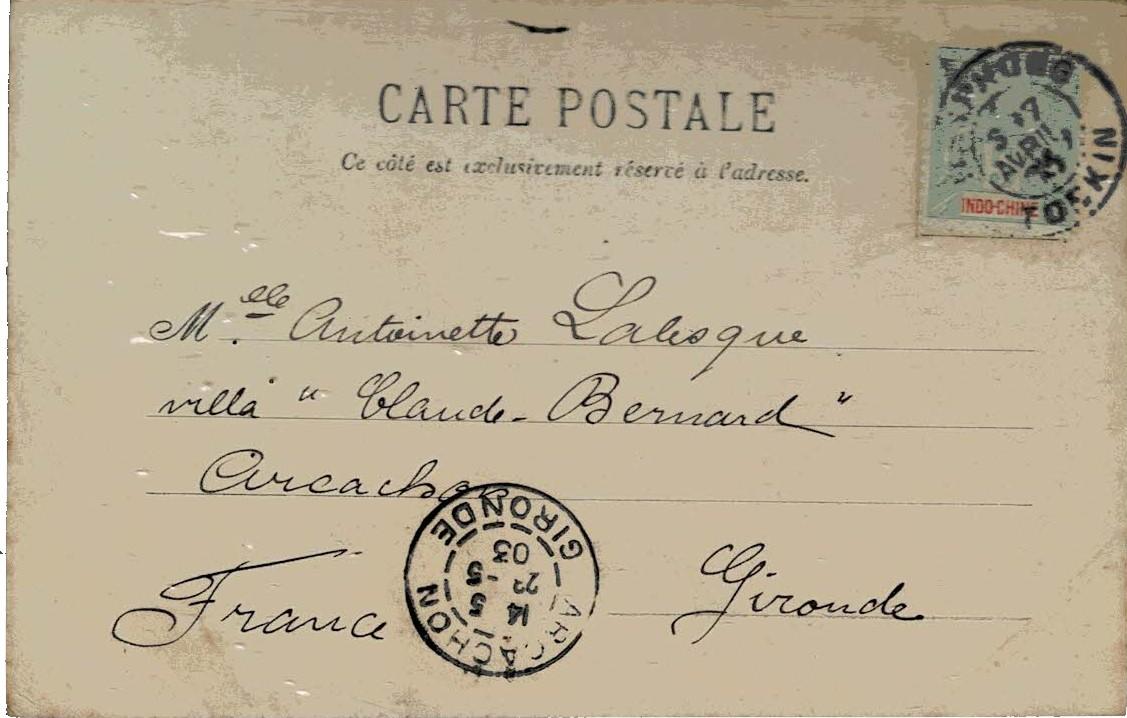 CARTE POSTALE
Ce côté est exclusivement réservé à l'adresse.
AVRIL
TONKIN
INDO-CHINE
Melle Antoinette Lalesque
villa "Claude-Bernard"
Arcachon
France Gironde
ARCACHON
GIRONDE
14 5
03